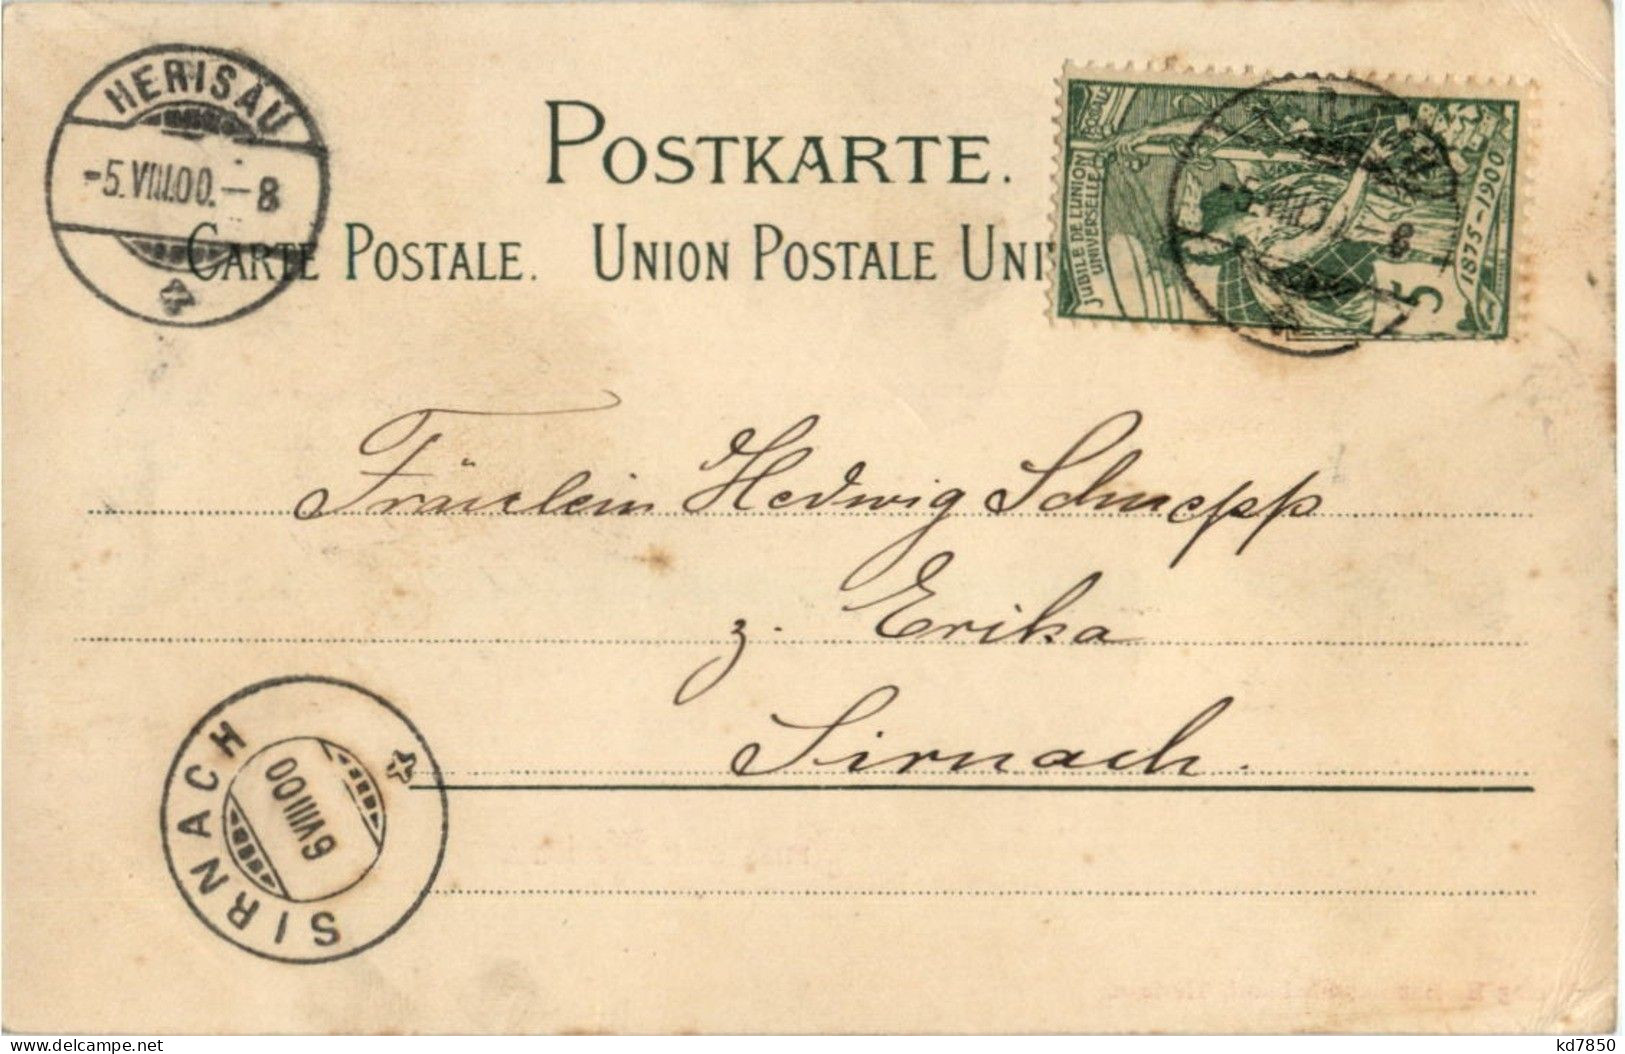 HERISAU
-5.VIII.00.-8
POSTKARTE.
CARTE POSTALE. UNION POSTALE UNI
JUBILÉ DE L'UNION
POSTALE
UNIVERSELLE
1875-1900
5
8
Fräulein Hedwig Schnepp
z. Erika
Sirnach.
SIRNACH
6 VIII 00
kd7850